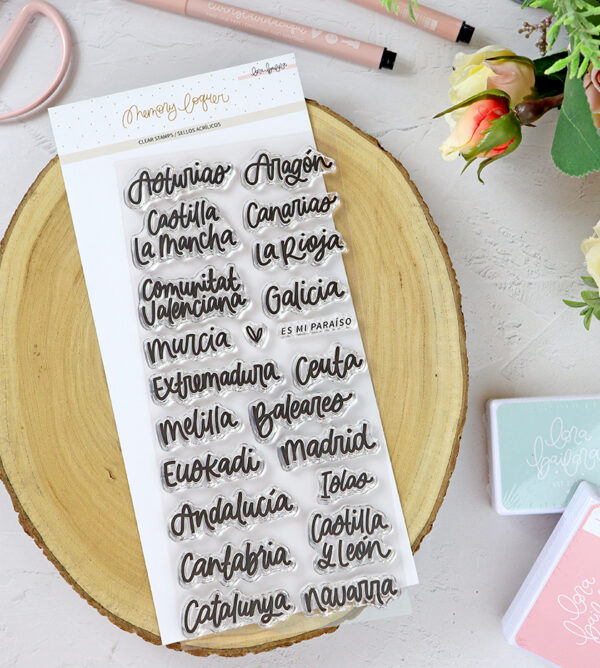 lora bailora
Memory Loquer
CLEAR STAMPS / SELLOS ACRÍLICOS
Asturias
Aragón
Castilla
La Mancha
Canarias
La Rioja
Comunitat
Valenciana
Galicia
Murcia
ES MI PARAÍSO
Extremadura
Ceuta
Melilla
Baleares
Euskadi
Madrid
Islas
Andalucía
Castilla
y León
Cantabria
Catalunya
Navarra
lora
bailora
lora
bailora